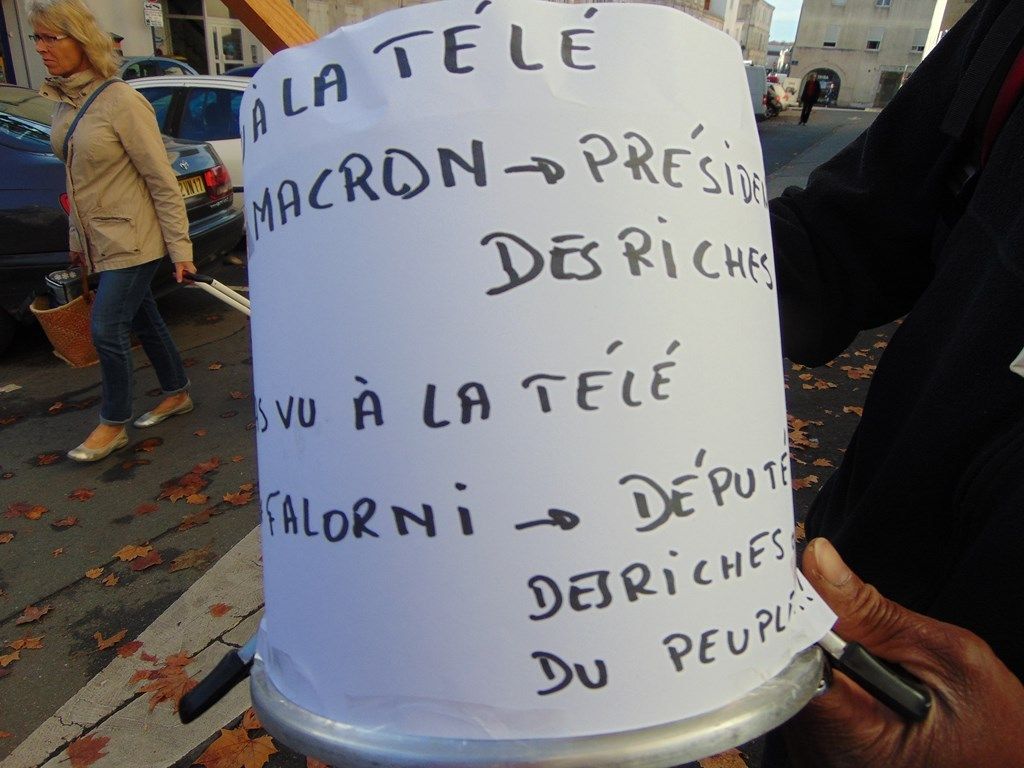 À LA TÉLÉ
MACRON → PRÉSIDE
DES RICHES
S VU À LA TÉLÉ
FALORNI → DÉPUTÉ
DES RICHES
DU PEUPL